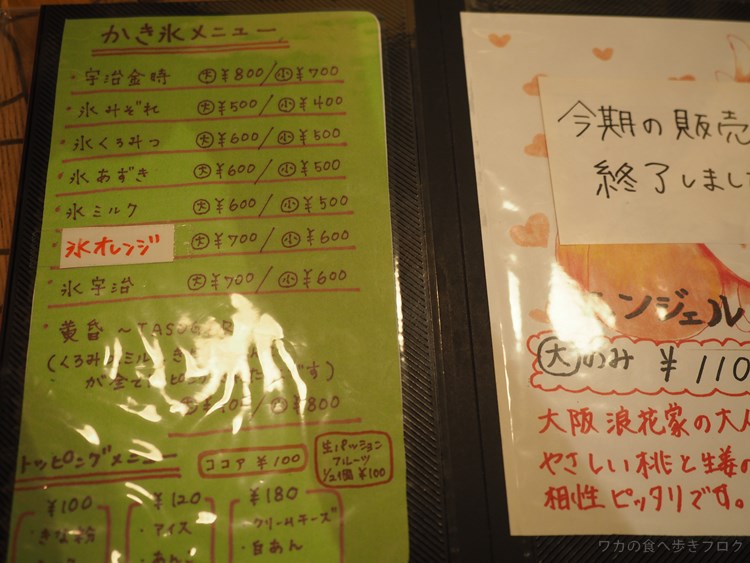 かき氷メニュー
・宇治金時 大¥800/小¥700
・氷みぞれ 大¥500/小¥400
・氷くろみつ 大¥600/小¥500
・氷あずき 大¥600/小¥500
・氷ミルク 大¥600/小¥500
氷オレンジ 大¥700/小¥600
・氷宇治 大¥700/小¥600
・黄昏 ～TASOGAR
(くろみつミルク
¥800
トッピングメニュー
ココア ¥100
生パッション
フルーツ
1/2個 ¥100
¥100
・きな粉
¥120
・アイス
・あん
¥180
クリームチーズ
・白あん
今期の販売
終了しまし
ンジェル
大のみ ¥110
大阪浪花家の大
やさしい桃と生姜の
相性ピッタリです。
ワカの食べ歩きブログ